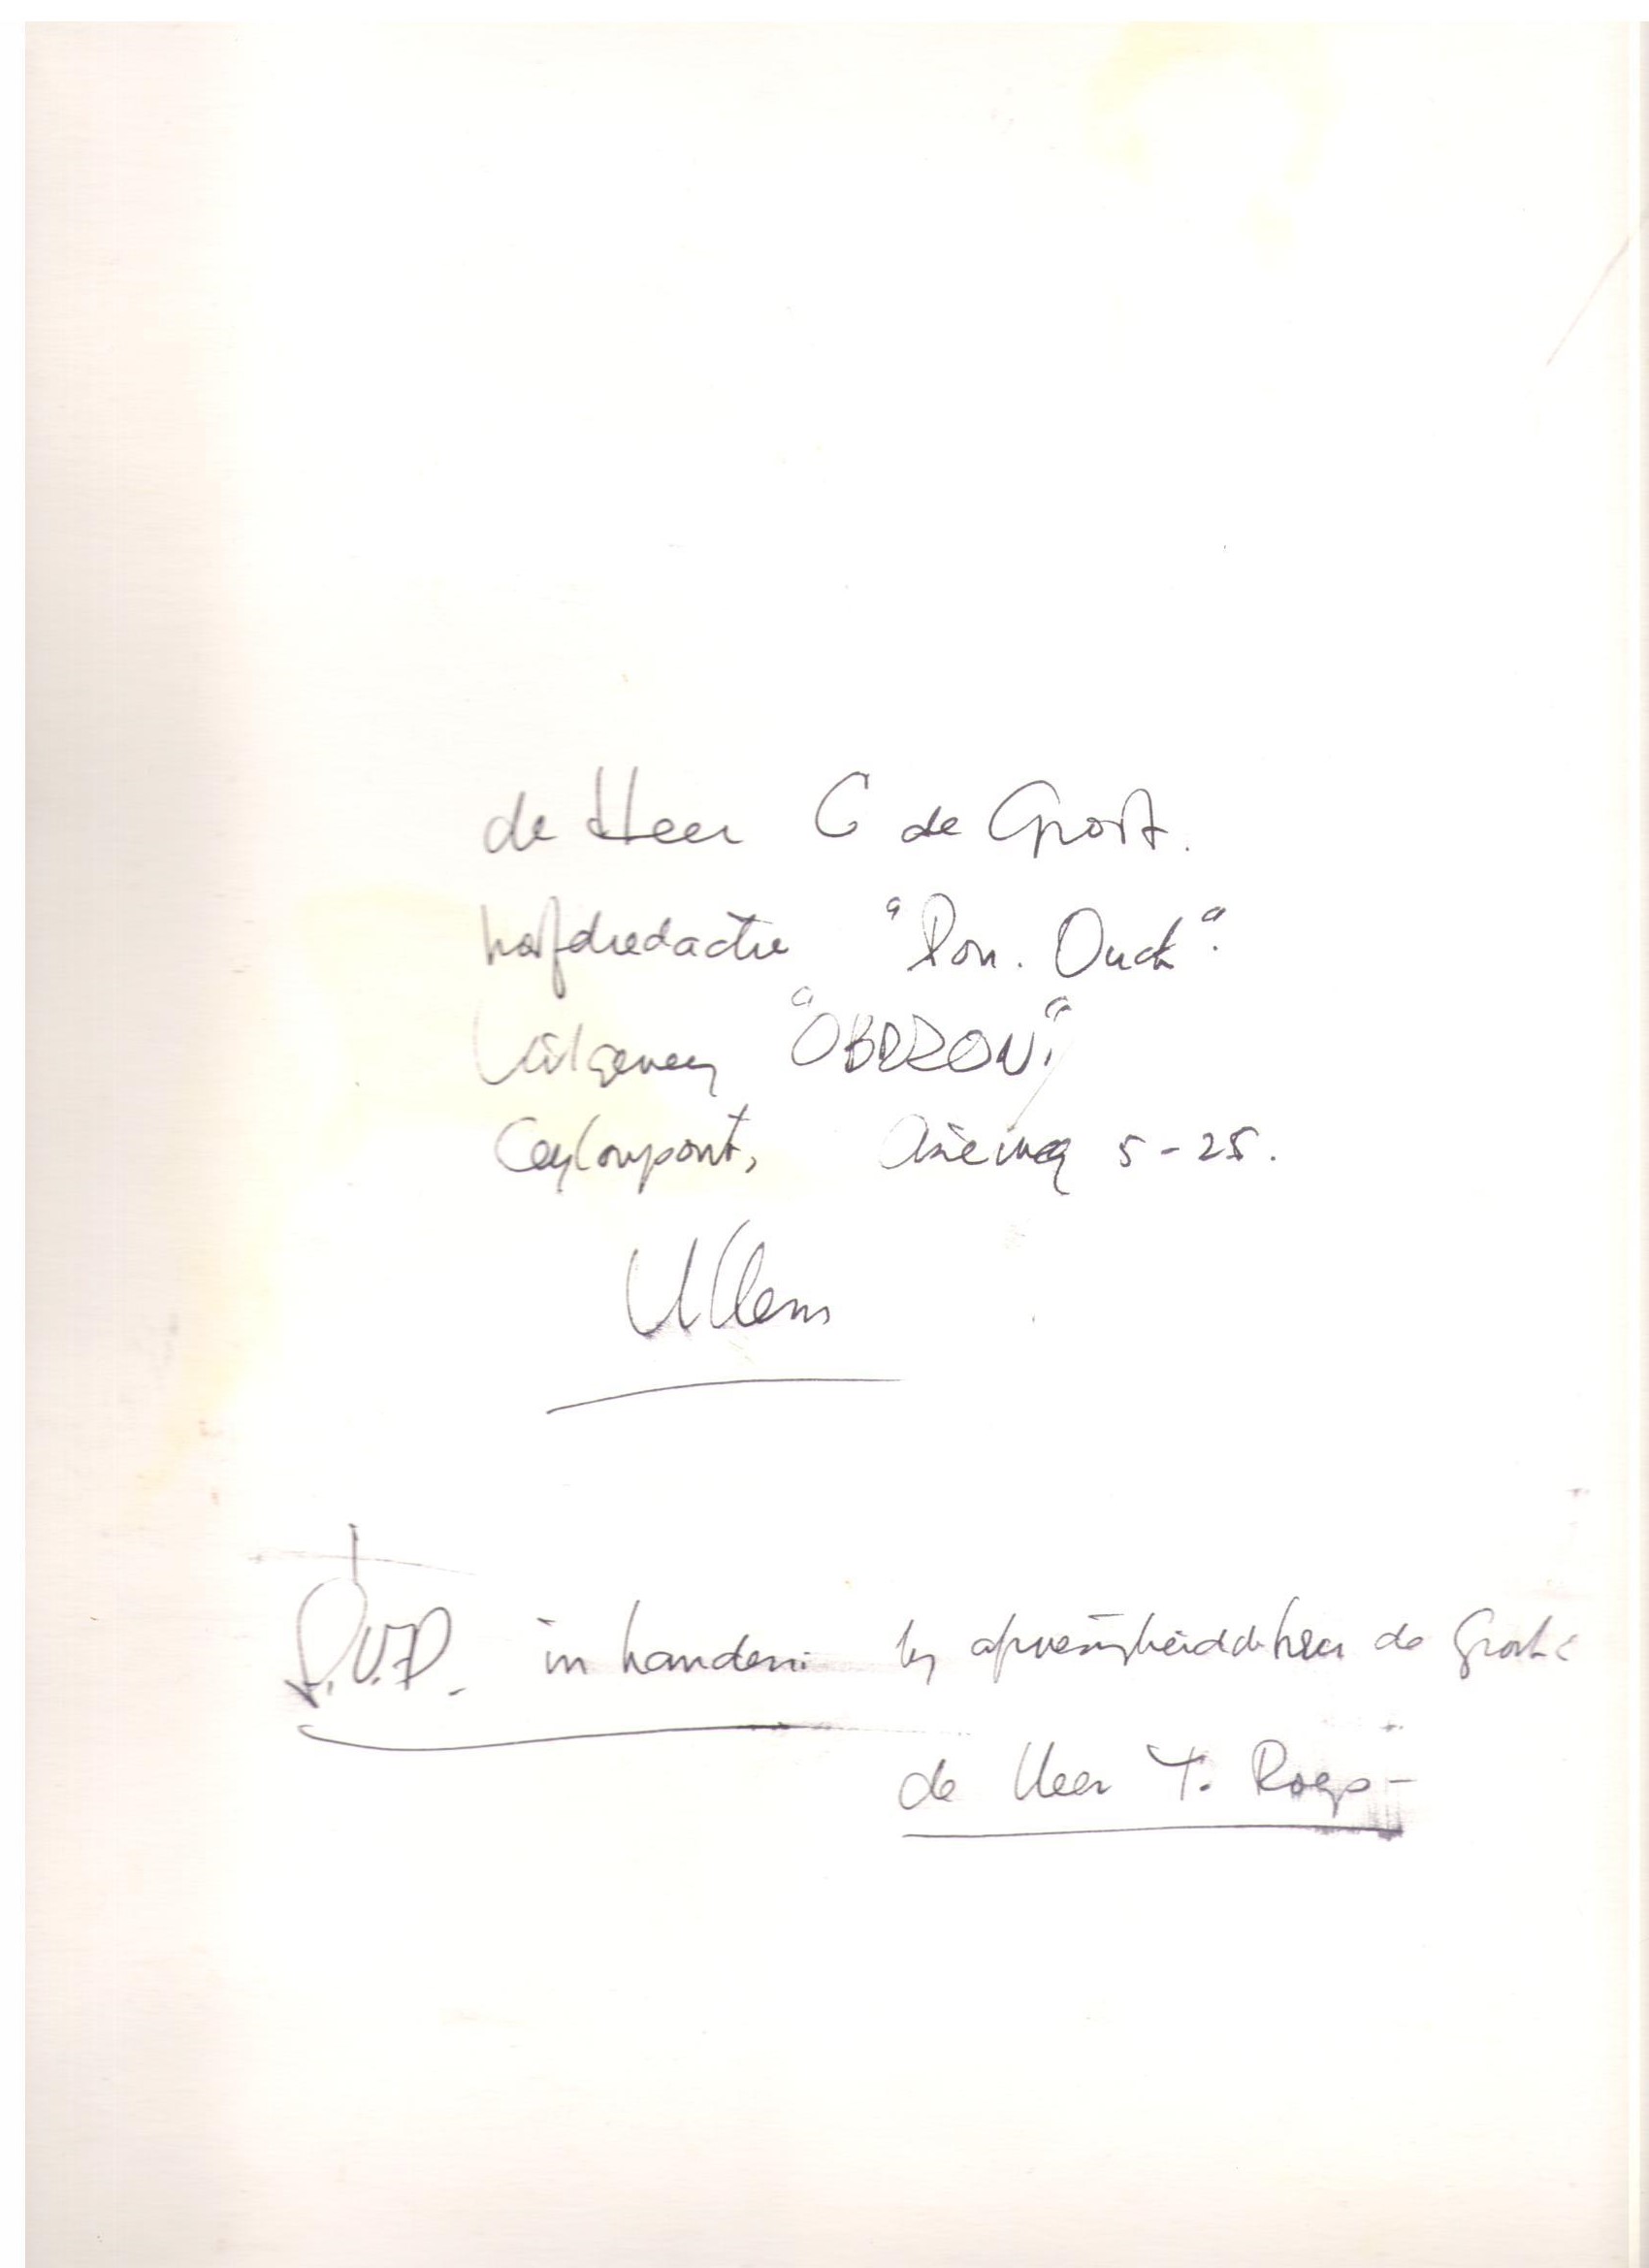 de Heer C de Groot.
hoofdredactie "Pon. Ouck".
Uitgeverij "OBERON".
Ceylonpoort, Azieweg 5-25.
in handen: bij afwezigheid de heer de Groot:
de Heer T. Roep-